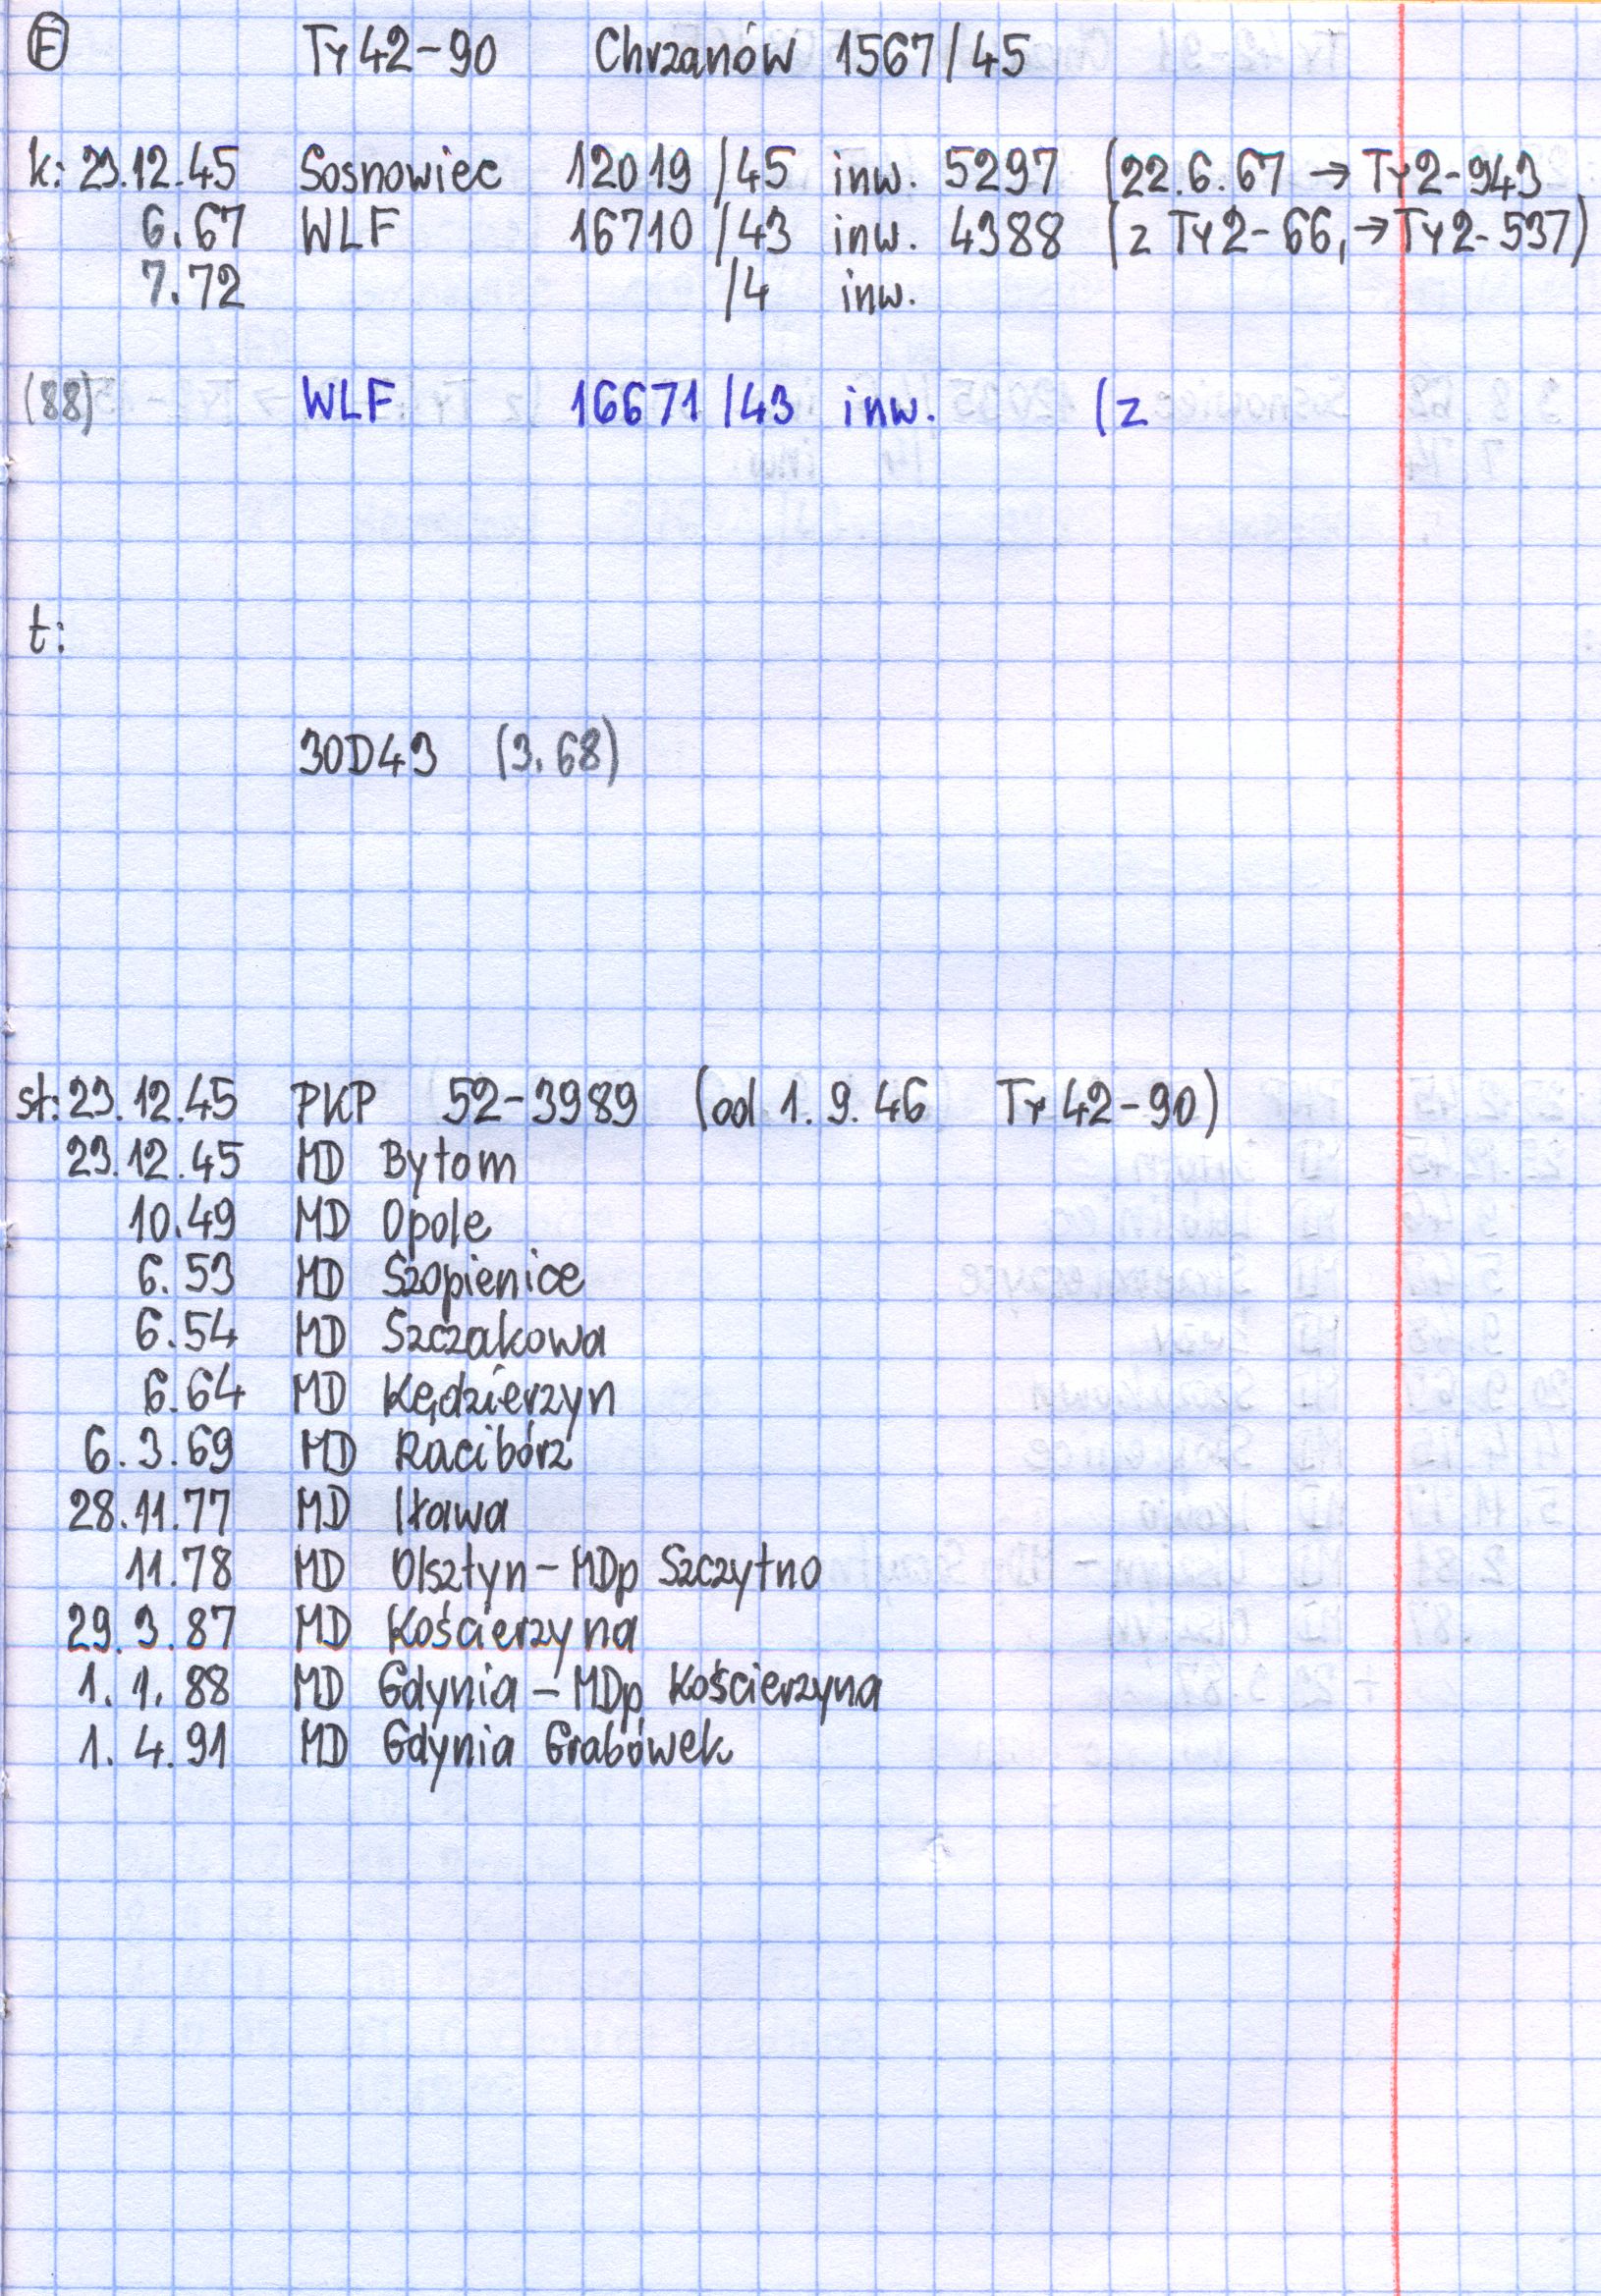 E Ty42-90 Chrzanów 1567/45
k: 23.12.45 Sosnowiec 12019/45 inw. 5297 (22.6.67 → Ty2-943
6.67 WLF 16710/43 inw. 4388 (z Ty2-66, → Ty2-537)
7.72 /4 inw.
(88) WLF 16671/43 inw. (z
t:
30D43 (3.68)
st: 23.12.45 PKP 52-3989 (od 1.9.46 Ty42-90)
23.12.45 MD Bytom
10.49 MD Opole
6.53 MD Szopienice
6.54 MD Szczakowa
6.64 MD Kędzierzyn
6.3.69 MD Racibórz
28.11.77 MD Iława
11.78 MD Olsztyn-MDp Szczytno
29.3.87 MD Kościerzyna
1.1.88 MD Gdynia-MDp Kościerzyna
1.4.91 MD Gdynia Grabówek